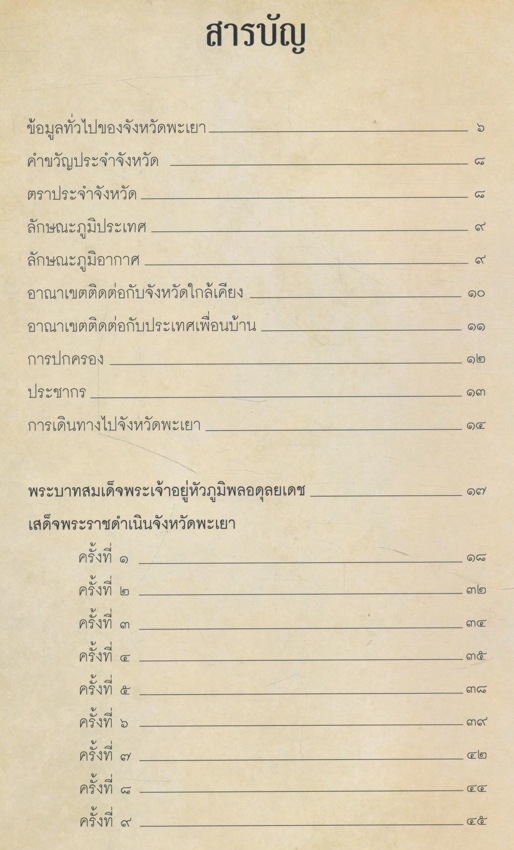 สารบัญ
ข้อมูลทั่วไปของจังหวัดพะเยา ๖
คำขวัญประจำจังหวัด ๘
ตราประจำจังหวัด ๘
ลักษณะภูมิประเทศ ๙
ลักษณะภูมิอากาศ ๙
อาณาเขตติดต่อกับจังหวัดใกล้เคียง ๑๐
อาณาเขตติดต่อกับประเทศเพื่อนบ้าน ๑๑
การปกครอง ๑๒
ประชากร ๑๓
การเดินทางไปจังหวัดพะเยา ๑๔
พระบาทสมเด็จพระเจ้าอยู่หัวภูมิพลอดุลยเดช ๑๗
เสด็จพระราชดำเนินจังหวัดพะเยา
ครั้งที่ ๑ ๑๘
ครั้งที่ ๒ ๓๒
ครั้งที่ ๓ ๓๔
ครั้งที่ ๔ ๓๕
ครั้งที่ ๕ ๓๘
ครั้งที่ ๖ ๓๙
ครั้งที่ ๗ ๔๒
ครั้งที่ ๘ ๔๔
ครั้งที่ ๙ ๔๕